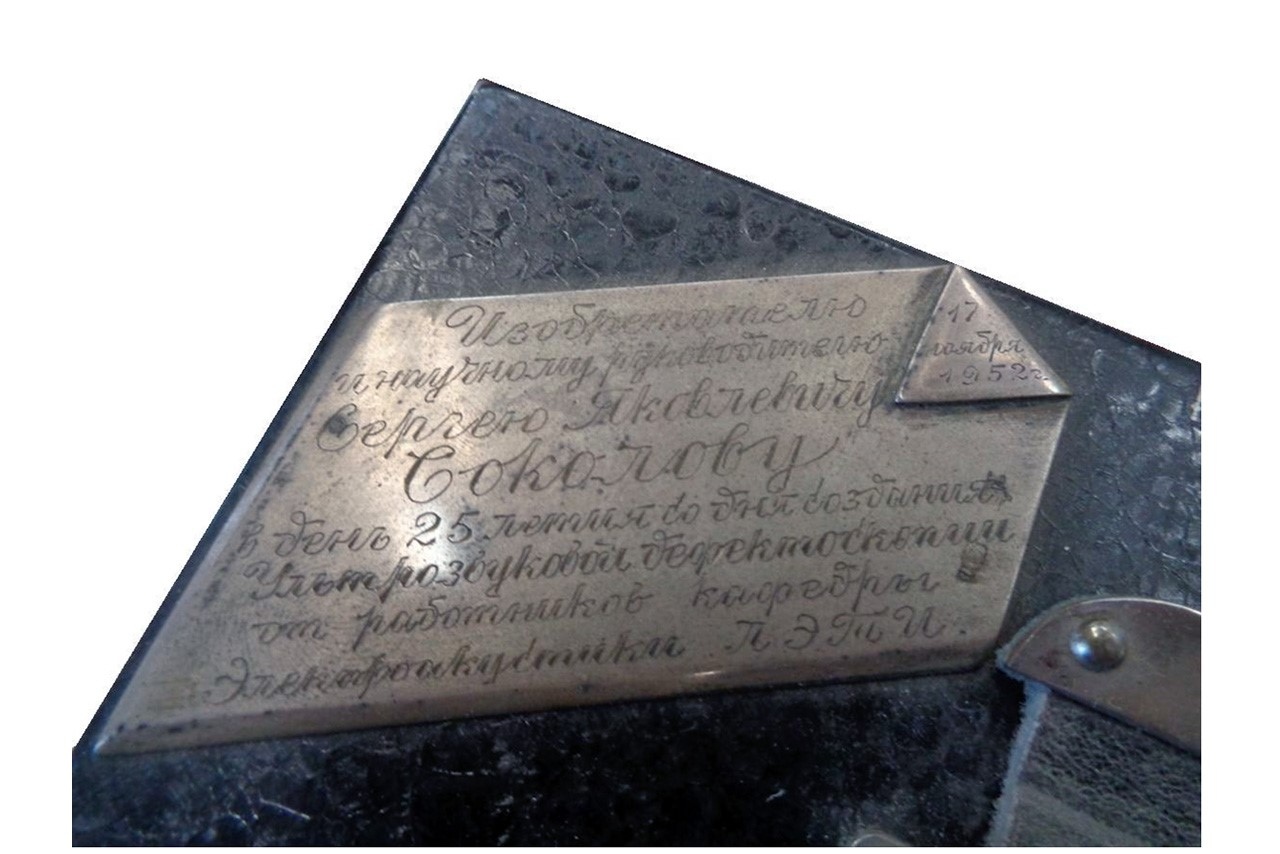 Изобретателю
и научному руководителю
Сергею Яковлевичу
Соколову
в день 25 летия со дня создания
Ультрозвуковой дефектоскопии
от работников кафедры
Электроакустики ЛЭТИ.
17
ноября
1952 г.